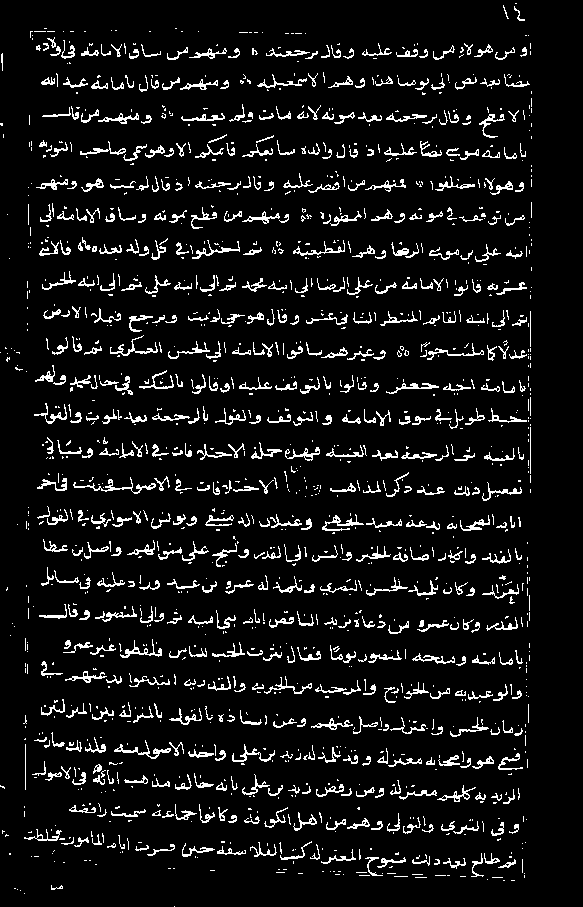 ١٤
ومن هولاء من وقف عليه وقال برجعته ومنهم من ساق الامامة في اولاده
نصا بعد نص الي يومنا هذا وهم الاسمعيلية ومنهم من قال بامامة عبد الله
الافطح وقال برجعته بعد موته لانه مات ولم يعقب ومنهم من قال
بامامة موسى نصا عليه اذ قال والده سابعكم قايمكم الا وهو سمي صاحب التورية
وهولا اختلفوا فمنهم من اقتصر عليه وقال برجعته اذ قال لم يمت هو ومنهم
من توقف في موته وهم الممطورة ومنهم من قطع بموته وساق الامامة الي
ابنه علي بن موسى الرضا وهم القطيعية ثم اختلفوا في كل ولد بعده فالاثنا
عشرية قالوا الامامة من علي الرضا الي ابنه محمد ثم الي ابنه علي ثم الي ابنه الحسن
ثم الي ابنه القايم المنتظر الثاني عشر وقال هو حي لم يمت ويرجع فيملا الارض
عدلا كما ملئت جورا وغيرهم ساقوا الامامة الي الحسن العسكري ثم قالوا
بامامة اخيه جعفر وقالوا بالتوقف عليه او قالوا بالشك في حال محمد ولهم
خبط طويل في سوق الامامة والتوقف والقول بالرجعة بعد الموت والقول
بالغيبة ثم الرجعة بعد الغيبة فهذه جملة الاختلافات في الامامة وسياتي
تفصيل ذلك عند ذكر المذاهب الاختلافات في الاصول فحدثت في اخر
ايام الصحابة بدعة معبد الجهني وغيلان الدمشقي ويونس الاسواري في القول
بالقدر وانكار اضافة الخير والشر الي القدر ونسج علي منوالهم واصل بن عطا
الغزال وكان تلميذ الحسن البصري وتلمذ له عمرو بن عبيد وزاد عليه في مسايل
القدر وكان عمرو من دعاة يزيد الناقص ايام بني اميه ثم والي المنصور وقال
بامامته ومدحه المنصور يوما فقال نثرت الحب للناس فلقطوا غير عمرو
والوعيديه من الخوارج والمرجيه من الجبريه والقدريه ابتدعوا بدعتهم في
زمان الحسن واعتزل واصل عنهم وعن استاذه بالقول بالمنزلة بين المنزلتين
فسمي هو واصحابه معتزلة وقد تلمذ له زيد بن علي واخذ الاصول منه فلذلك صارت
الزيديه كلهم معتزلة ومن رفض زيد بن علي بانه خالف مذهب آبائه في الاصول
وفي التبري والتولي وهم من اهل الكوفة وكانوا جماعة سميت رافضة
ثم طالع بعد ذلك شيوخ المعتزلة كتب الفلاسفة حين فسرت ايام المامون فخلطت